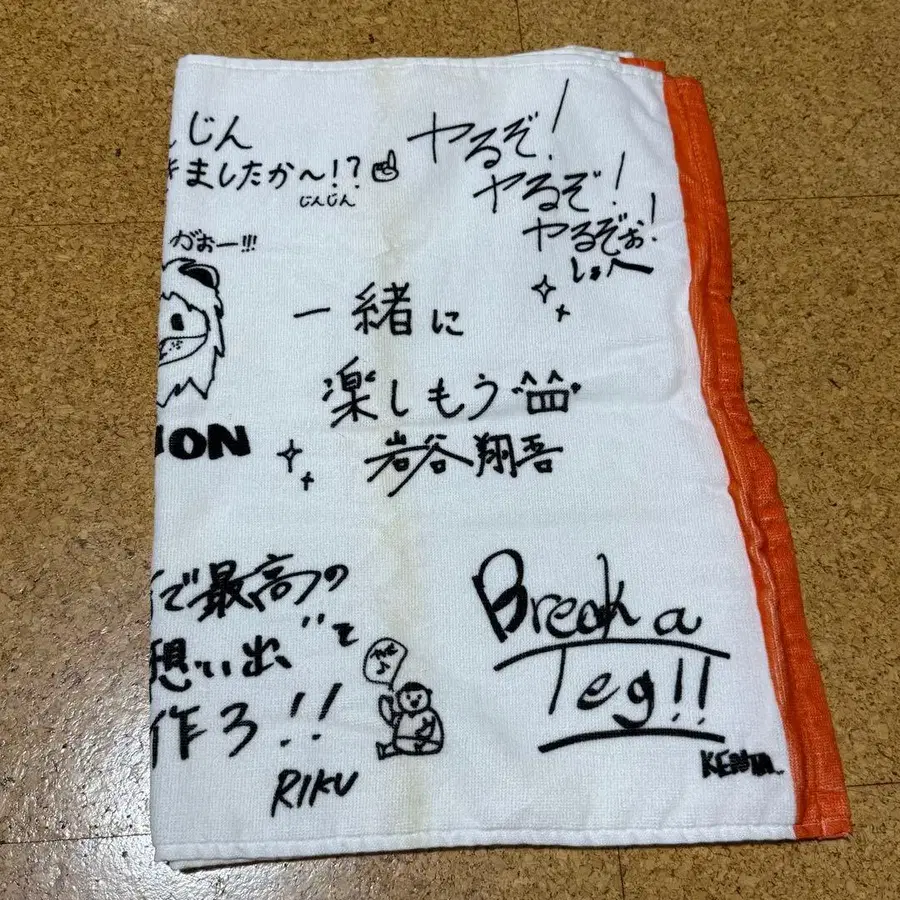 じん
きましたか〜!?
じんじん
がおー!!!
ION
ヤるぞ!
ヤるぞ!
ヤるぞぉ!
しょへー
一緒に
楽しもう
岩谷翔吾
で最高の
想い出を
作ろう!!
RIKU
Break a
Leg!!
KENTA